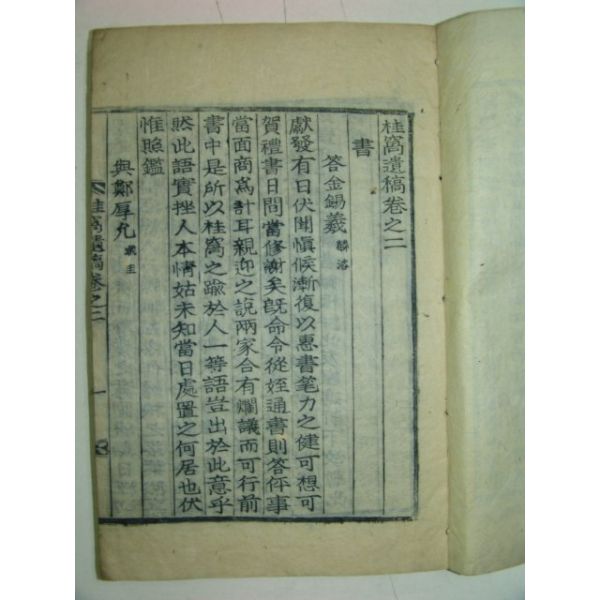 桂窩遺稿卷之二
書
答金錫羲 麟洛
獻發有日伏聞愼候漸復以惠書笔力之健可想可
賀禮書日問當修謝矣旣命令從姪通書則答伻事
當面商爲計耳親迎之說兩家合有爛議而可行前
書中是所以桂窩之踰於人一等語豈出於此意乎
然此語實挫人本情姑未知當日處置之何居也伏
惟照鑑
與鄭厚允
桂窩遺稿卷之二
一